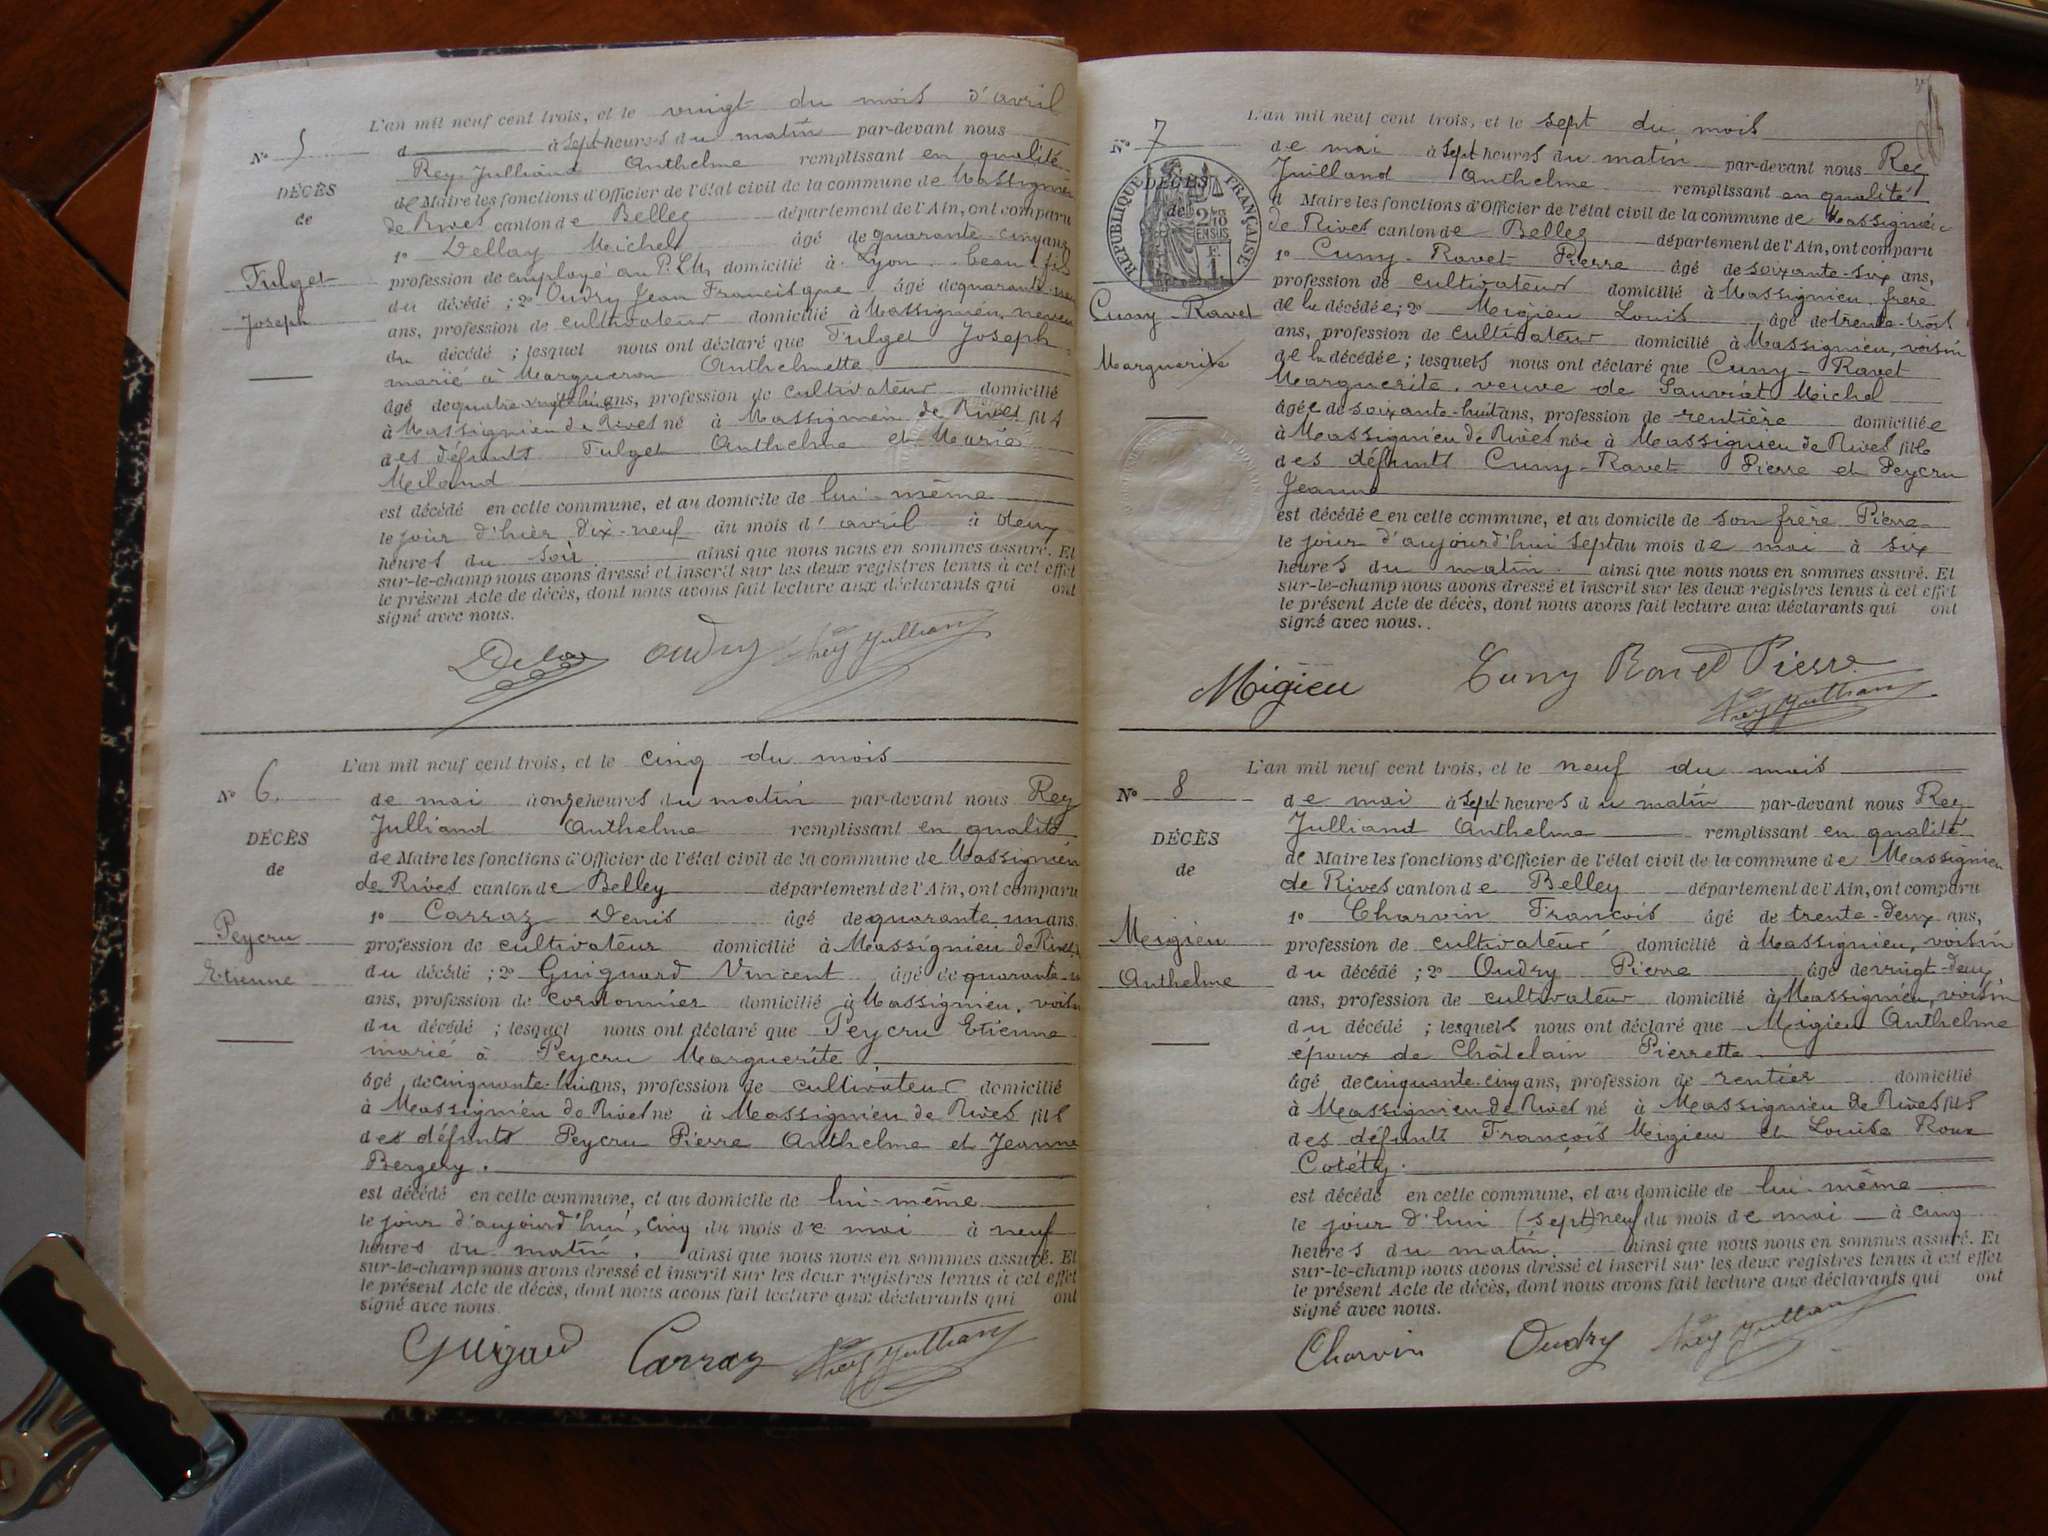 L'an mil neuf cent trois, et le vingt du mois d'avril
N° 5
à sept heures du matin par-devant nous
Rey Julliand Anthelme remplissant en qualité
DÉCÈS
de Maire les fonctions d'Officier de l'état civil de la commune de Massignieu
de
de Rives canton de Belley département de l'Ain, ont comparu
1° Dellay Michel âgé de quarante-cinq ans,
Fulget
profession de employé au P.L.M, domicilié à Lyon beau-fils
du décédé ; 2° Oudry Jean Francisque âgé de quarante
Joseph
ans, profession de cultivateur domicilié à Massignieu, neveu
du décédé ; lesquel nous ont déclaré que Fulget Joseph
marié à Margueron Anthelmette
âgé de quatre-vingt ans, profession de cultivateur domicilié
à Massignieu de Rives né à Massignieu de Rives fils
des défunts Fulget Anthelme et Marie
Miland
est décédé en cette commune, et au domicile de lui-même
le jour d'hier dix-neuf du mois d'avril à
heures du soir ainsi que nous nous en sommes assuré. Et
sur-le-champ nous avons dressé et inscrit sur les deux registres tenus à cet effet
le présent Acte de décès, dont nous avons fait lecture aux déclarants qui ont
signé avec nous.
Oudry Rey Julliand
L'an mil neuf cent trois, et le cinq du mois
N° 6.
de mai à onze heures du matin par-devant nous Rey
Julliand Anthelme remplissant en qualité
DÉCÈS
de Maire les fonctions d'Officier de l'état civil de la commune de Massignieu
de
de Rives canton de Belley département de l'Ain, ont comparu
1° Carraz Denis âgé de quarante un ans,
Peycru
profession de cultivateur domicilié à Massignieu de Rives,
Etienne
du décédé ; 2° Guignard Vincent âgé de quarante
ans, profession de cordonnier domicilié à Massignieu, voisin
du décédé ; lesquel nous ont déclaré que Peycru Etienne
marié à Peycru Marguerite
âgé de cinquante-huit ans, profession de cultivateur domicilié
à Massignieu de Rives né à Massignieu de Rives fils
des défunts Peycru Pierre Anthelme et Jeanne
Bergery.
est décédé en cette commune, et au domicile de lui-même
le jour d'aujourd'hui, cinq du mois de mai à neuf
heures du matin, ainsi que nous nous en sommes assuré. Et
sur-le-champ nous avons dressé et inscrit sur les deux registres tenus à cet effet
le présent Acte de décès, dont nous avons fait lecture aux déclarants qui ont
signé avec nous.
Carraz Rey Julliand
L'an mil neuf cent trois, et le sept du mois
N° 7
de mai à sept heures du matin par-devant nous Rey
Juilland Anthelme remplissant en qualité
DÉCÈS
de
RÉPUBLIQUE FRANÇAISE
d Maire les fonctions d'Officier de l'état civil de la commune de Massignieu
de Rives canton de Belley département de l'Ain, ont comparu
1° Cuny-Ravet Pierre âgé de soixante-six ans,
profession de cultivateur domicilié à Massignieu, frère
Cuny-Ravet
de la décédée ; 2° Migieu Louis âgé de trente-trois
ans, profession de cultivateur domicilié à Massignieu, voisin
Marguerite
de la décédée ; lesquels nous ont déclaré que Cuny-Ravet
Marguerite, veuve de Sauvrét Michel
âgée de soixante-huit ans, profession de rentière domiciliée
à Massignieu de Rives née à Massignieu de Rives fille
des défunts Cuny-Ravet Pierre et Peycru
Jeanne
est décédée en cette commune, et au domicile de son frère Pierre
le jour d'aujourd'hui sept du mois de mai à six
heures du matin ainsi que nous nous en sommes assuré. Et
sur-le-champ nous avons dressé et inscrit sur les deux registres tenus à cet effet
le présent Acte de décès, dont nous avons fait lecture aux déclarants qui ont
signé avec nous.
Migieu Cuny Ravet Pierre
Rey Julliand
L'an mil neuf cent trois, et le neuf du mois
N° 8
de mai à sept heures du matin par-devant nous Rey
Julliand Anthelme remplissant en qualité
DÉCÈS
de Maire les fonctions d'Officier de l'état civil de la commune de Massignieu
de
de Rives canton de Belley département de l'Ain, ont comparu
1° Charvin François âgé de trente-deux ans,
Meigieu
profession de cultivateur domicilié à Massignieu, voisin
Anthelme
du décédé ; 2° Oudry Pierre âgé de vingt-deux
ans, profession de cultivateur domicilié à Massignieu, voisin
du décédé ; lesquels nous ont déclaré que Migieu Anthelme
époux de Châtelain Pierrette
âgé de cinquante-cinq ans, profession de rentier domicilié
à Massignieu de Rives né à Massignieu de Rives fils
des défunts François Migieu et Louise Roux
Cotéty.
est décédé en cette commune, et au domicile de lui-même
le jour d'hui (sept) neuf du mois de mai à cinq
heures du matin. ainsi que nous nous en sommes assuré. Et
sur-le-champ nous avons dressé et inscrit sur les deux registres tenus à cet effet
le présent Acte de décès, dont nous avons fait lecture aux déclarants qui ont
signé avec nous.
Charvin Oudry Rey Julliand